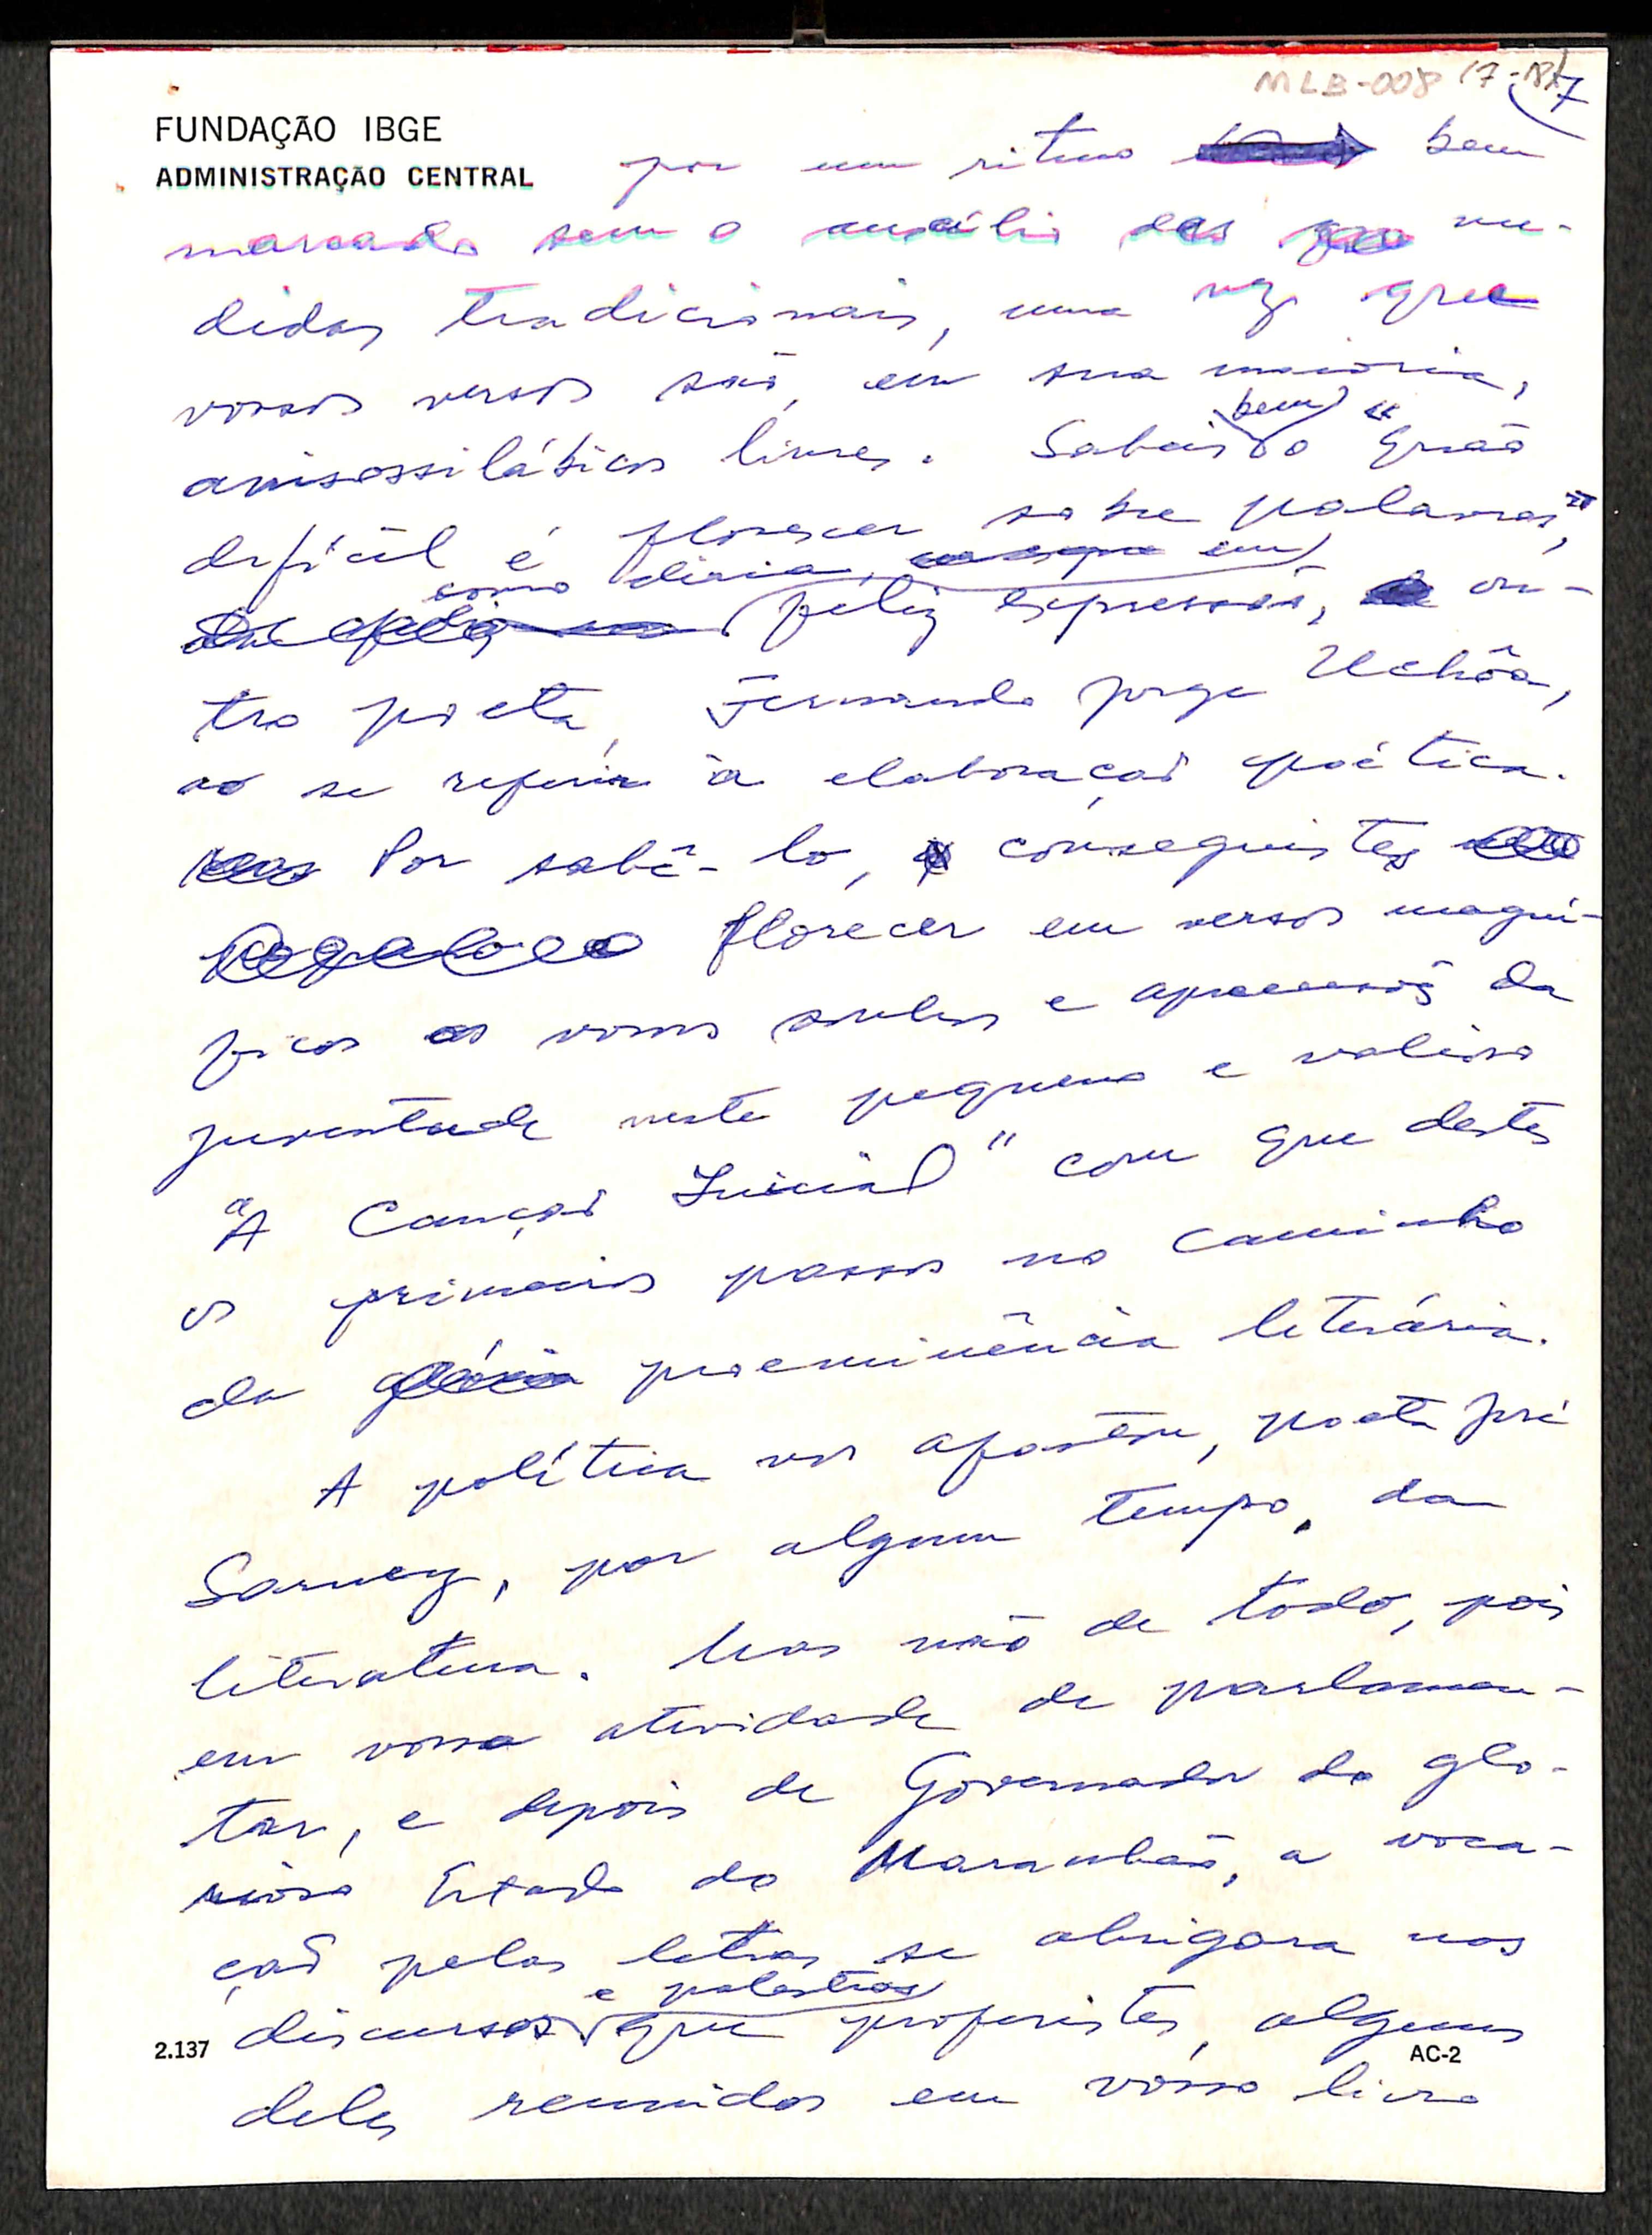 MLB-008 17-18
7
FUNDAÇÃO IBGE
ADMINISTRAÇÃO CENTRAL
por um ritmo bem
marcado sem o auxílio das me-
didas tradicionais, uma vez que
vossos versos são, em sua maioria,
anisossilábicos livres. Sabeis bem o "quão
difícil é florescer sobre palavras",
como diria, em feliz expressão, ou-
tro poeta, Fernando Jorge Uchôa,
ao se referir à elaboração poética.
Por sabê-lo, conseguistes
florecer em versos magní-
ficos os vossos sonhos e apreensões da
juventude neste pequeno e valioso
"A Canção Inicial" com que destes
os primeiros passos no caminho
da proeminência literária.
A política vos afastou, poeta José
Sarney, por algum tempo, da
literatura. Mas não de todo, pois
em vossa atividade de parlamen-
tar, e depois de Governador do glo-
rioso Estado do Maranhão, a voca-
ção pelas letras se abrigara nos
discursos e palestras que proferistes, alguns
deles reunidos em vosso livro
2.137
AC-2